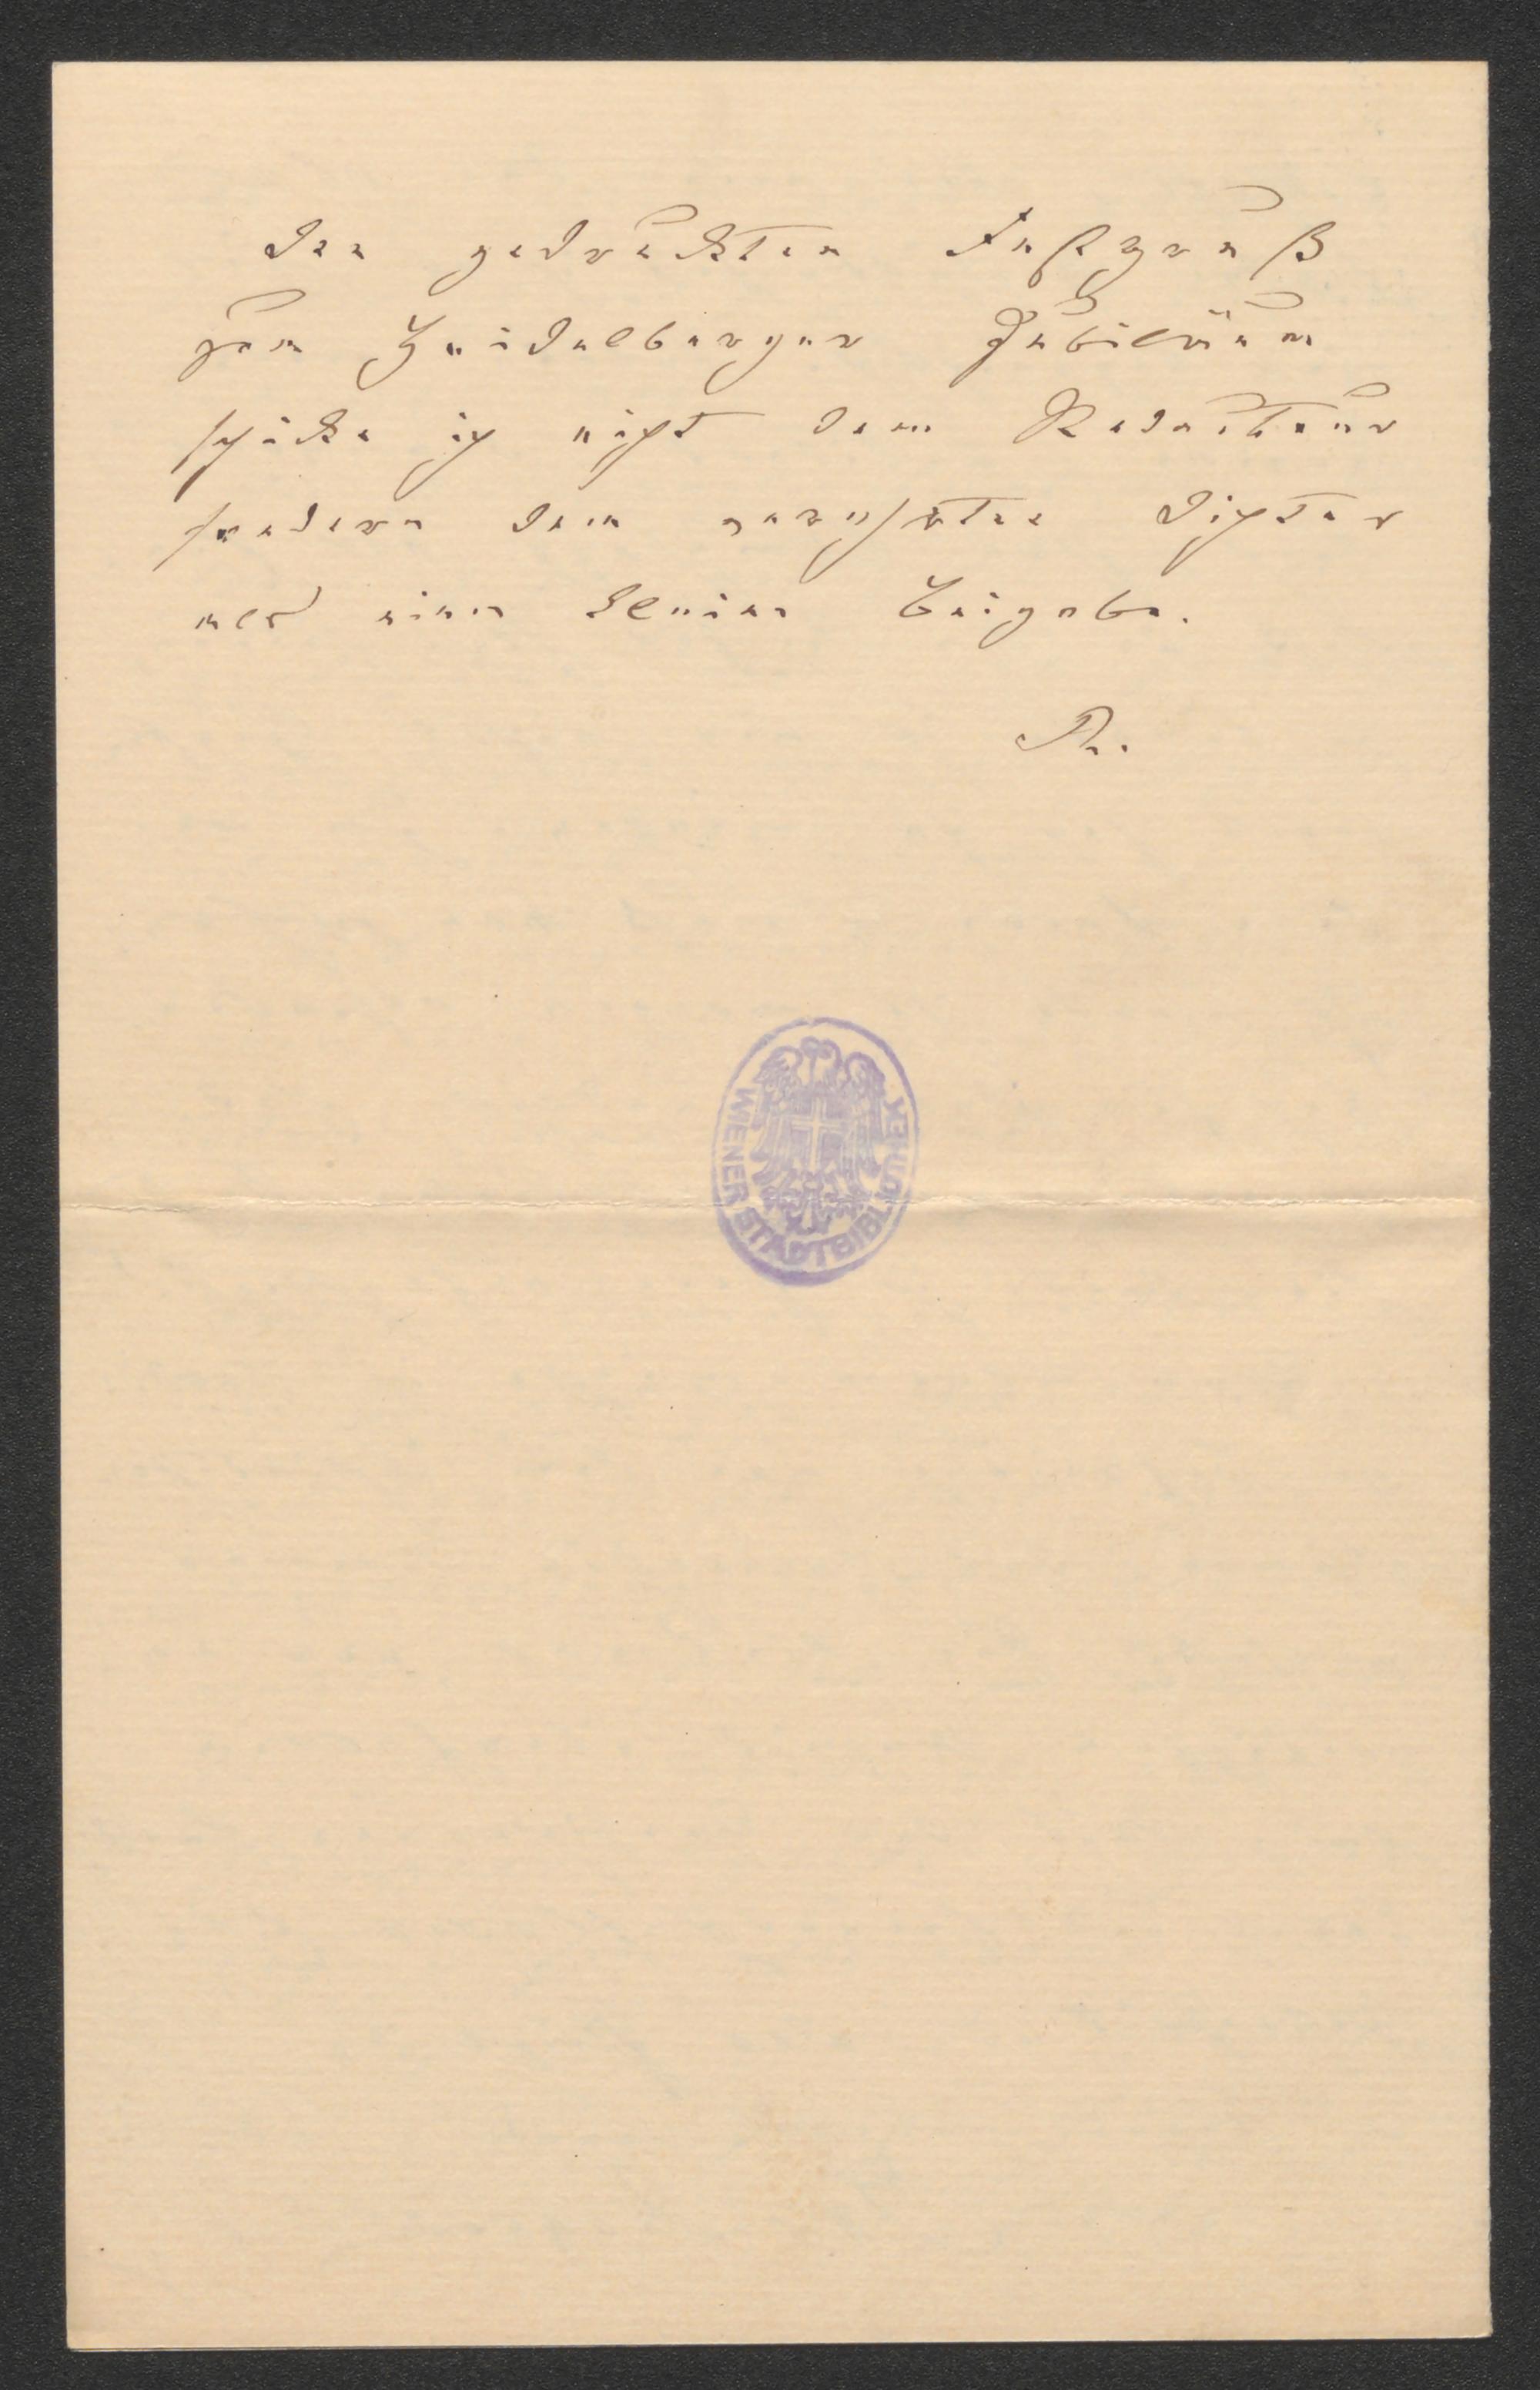 Den gedruckten Festgruß
zum Heidelberger Jubiläum
schicke ich nicht dem Redacteur
sondern dem verehrten Dichter
als eine kleine Beigabe.
R.
WIENER STADTBIBLIOTHEK